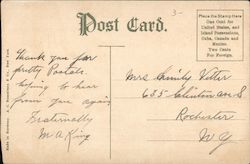 Post Card.
3-
Place the Stamp Here
One Cent for
United States, and
Island Possessions,
Cuba, Canada and
Mexico
Two Cents
For Foreign.
Thank you for
pretty Postals.
Hoping to hear
from you again
Fraternally
M A King
Mrs Emily Vetter
635 Clinton Av S
Rochester
N Y